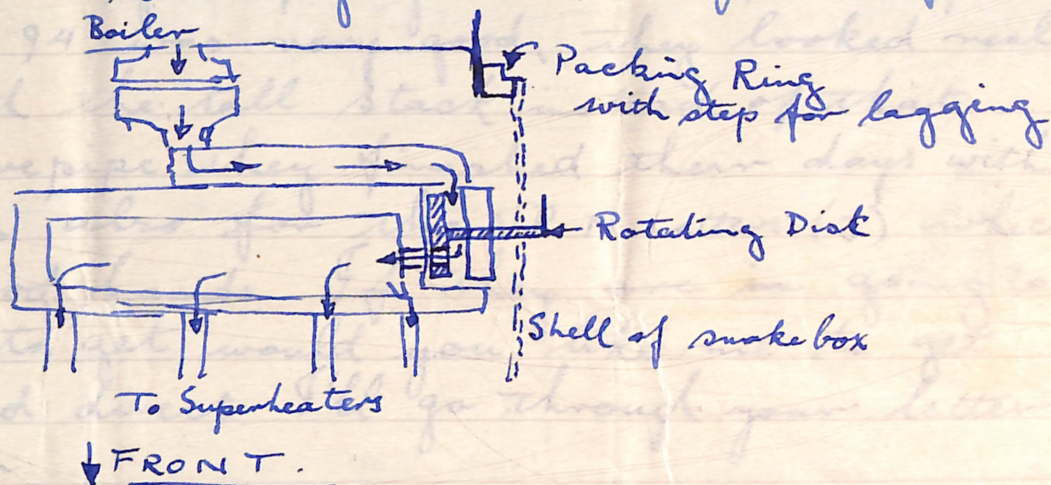 Boiler
Packing Ring
with step for lagging
Rotating Disk
Shell of smokebox
To Superheaters
FRONT.